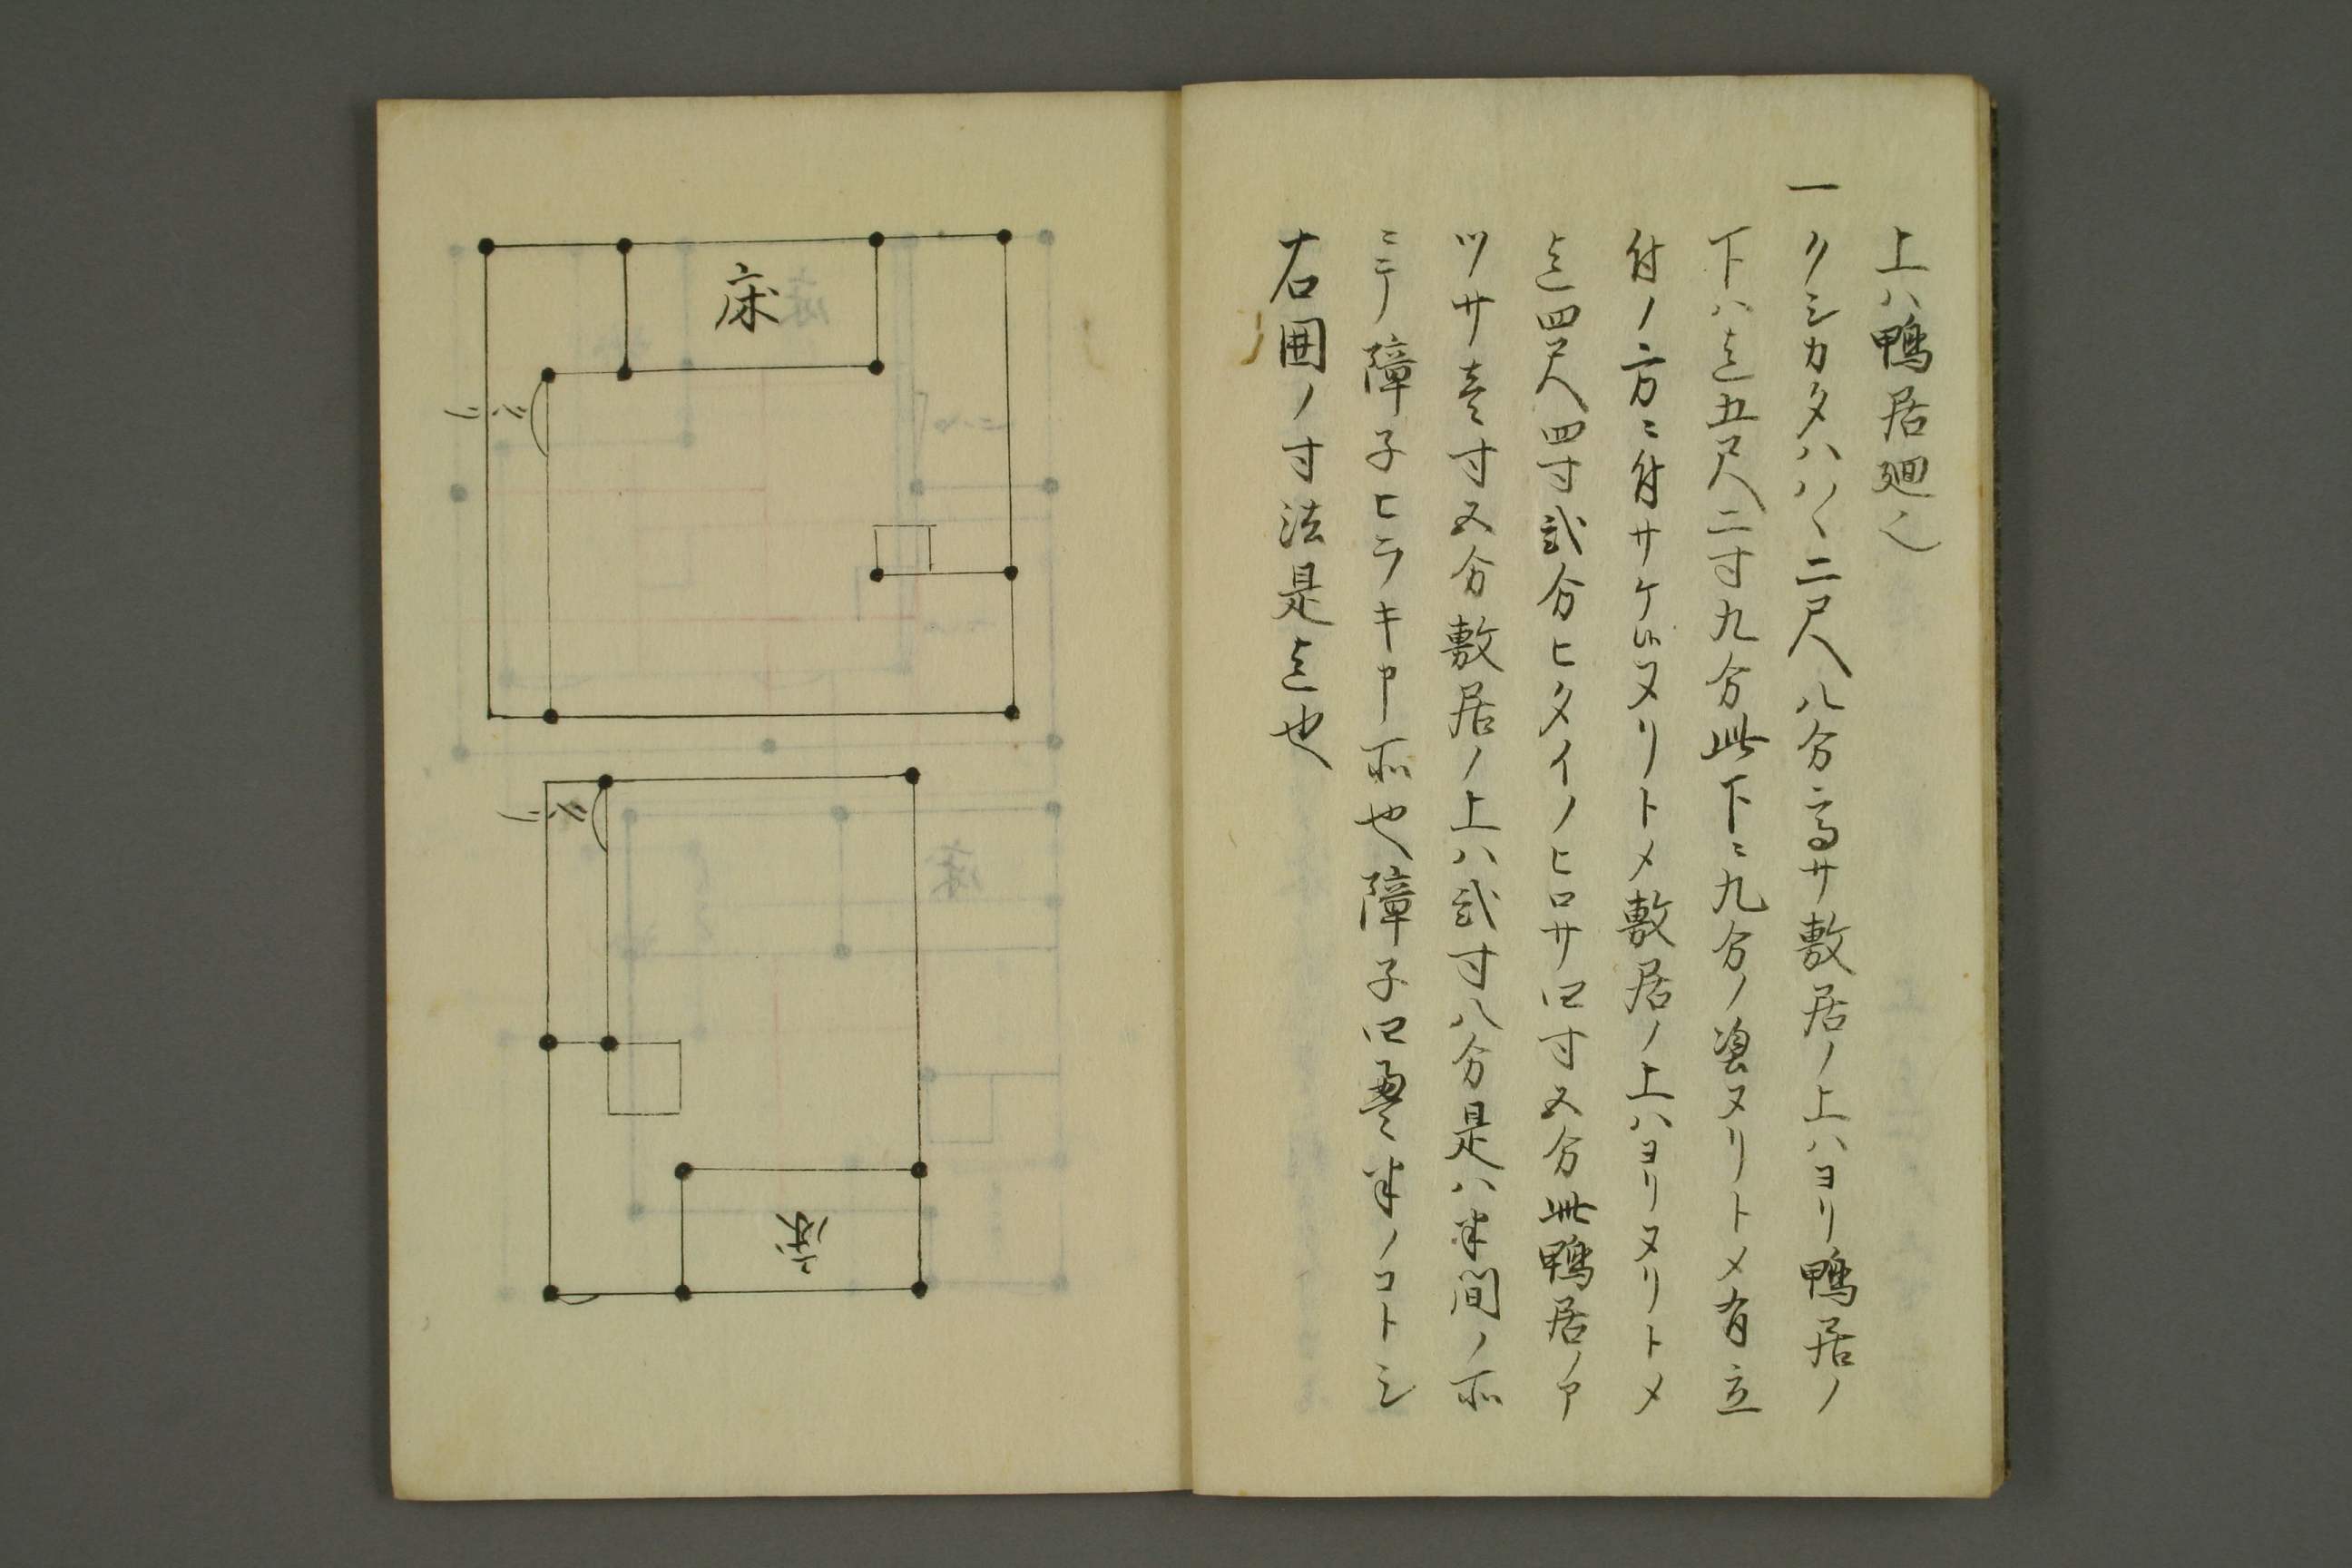 上ハ鴨居廻し
一クシカタハハヽ二尺八分高サ敷居ノ上ハヨリ鴨居ノ
下ハ迄五尺二寸九分此下ニ九分ノ塗ヌリトメ有立
付ノ方ニ付サケヌリトメ敷居ノ上ハヨリヌリトメ
迄四尺四寸弐分ヒタイノヒロサ四寸五分此鴨居ノア
ツサ壱寸五分敷居ノ上ハ弐寸八分是ハ半間ノ所
ニテ障子ヒラキ申所也障子口畳半ノコトシ
右囲ノ寸法是迄也
床
床